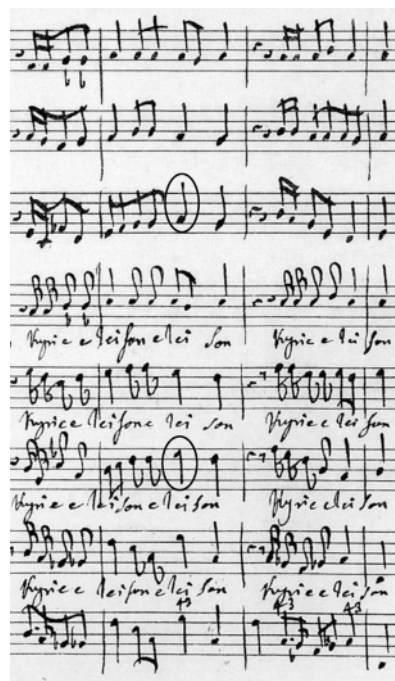 Kyrie eleison elei son Kyrie elei son
Kyrie eleison elei son Kyrie elei son
Kyrie eleison eleison Kyrie eleison
Kyrie eleison elei son Kyrie elei son
43 43 43